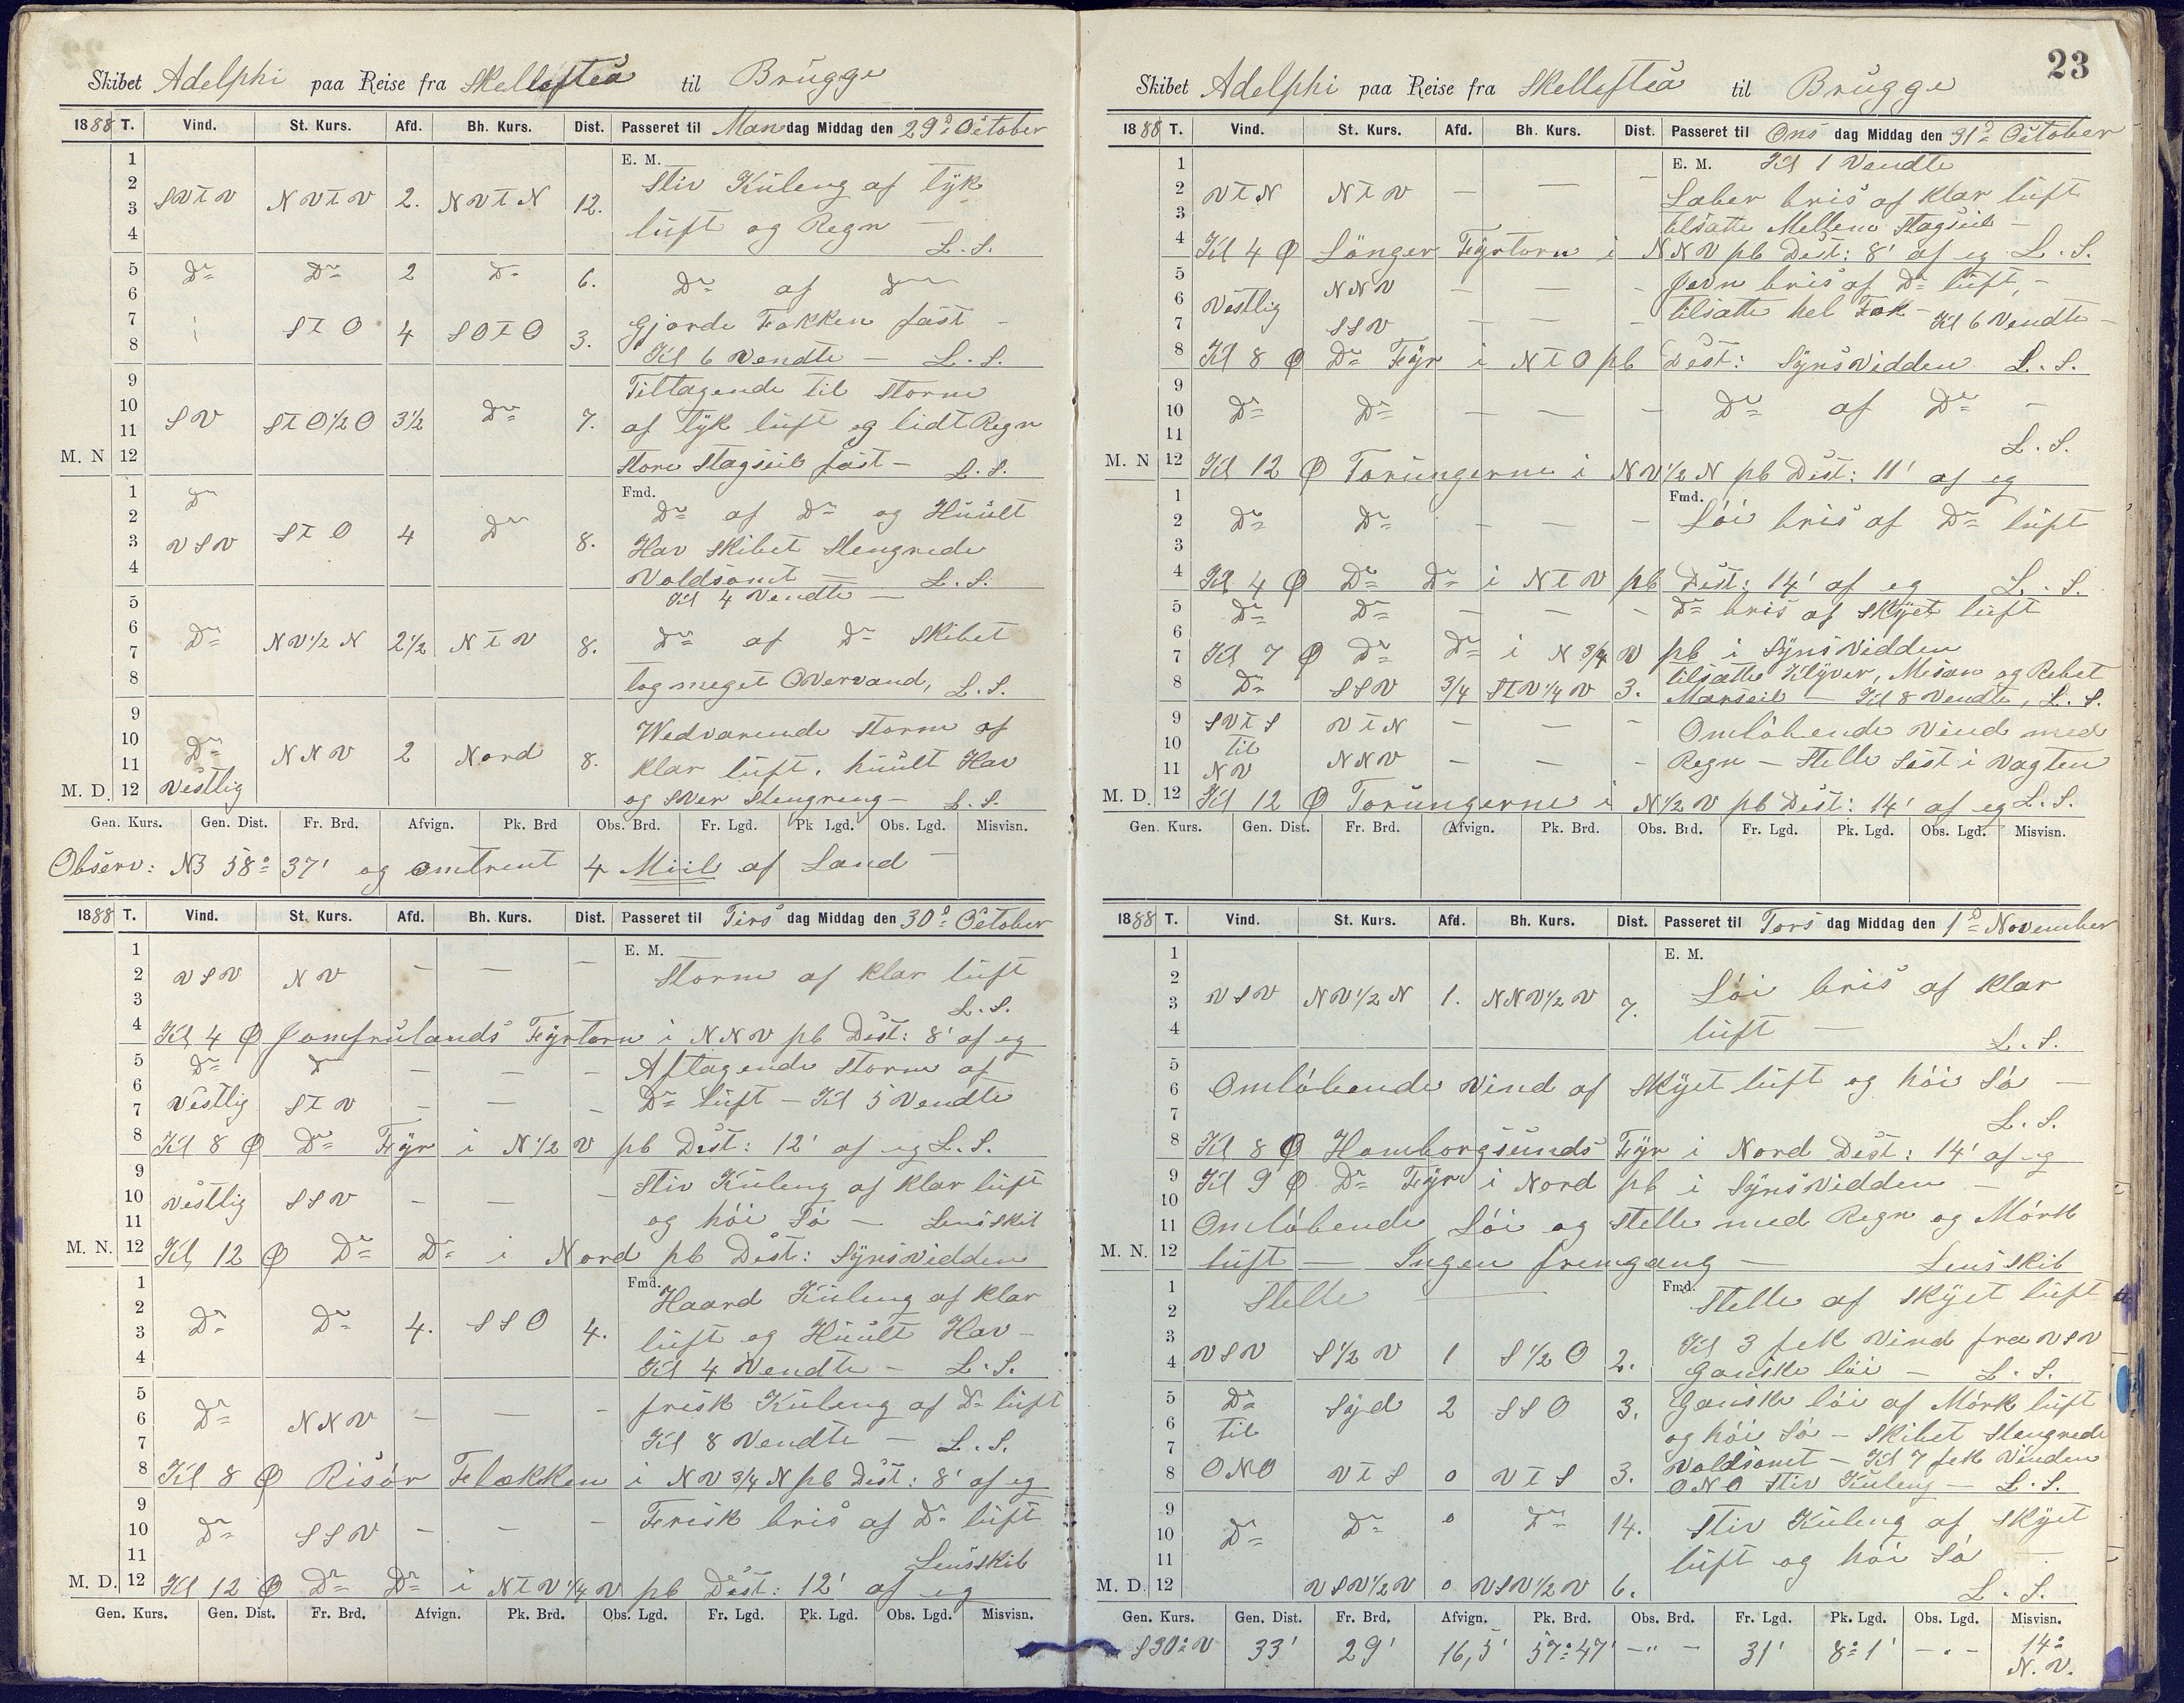 Skibet Adelphi paa Reise fra Skellefteå til Brügge
1888 T. Vind. St. Kurs. Afd. Bh. Kurs. Dist. Passeret til Mandag Middag den 29d October
E. M.
1
2 Stiv Küling af tyk
3 SVTV NVTV 2. NVTN 12. lüft og Regn —
4 L. S.
5 Do Do 2 Do 6. Do af Do
6
7 STO 4 SOTO 3. Gjorde Fokken fast —
8 Kl 6 Vendte — L. S.
9 Tiltagende til Storm
10 SV STO1/2O 3 1/2 Do 7. af tyk lüft og lidt Regn
11
M. N 12 Store Stagseil fast — L. S.
1 Do Fmd. Do af Do og Hüült
2
3 VSV STO 4 Do 8. Hav Skibet Slengrede
4 Voldsomt — L. S.
5 Kl 4 Vendte —
6 Do NV1/2N 2 1/2 NTV 8. Do af Do Skibet
7
8 tog meget Overvand, L. S.
9 Wedvarende Storm af
10 Do NNV 2 Nord 8. klar lüft. hüült Hav
11
M. D. 12 Vestlig og Svær Slengreng — L. S.
Gen. Kurs. Gen. Dist. Fr. Brd. Afvign. Pk. Brd Obs. Brd. Fr. Lgd. Pk Lgd. Obs. Lgd. Misvisn.
Observ: NB 58° 37' og omtrent 4 Miil af Land —
1888 T. Vind. St. Kurs. Afd. Bh. Kurs. Dist. Passeret til Tirsdag Middag den 30d October
1 E. M.
2 VSV NV — — — Storm af klar lüft
3 L. S.
4 Kl 4 Ø Jomfrülands Fyrtorn i NNV pb Dist: 8' af eg
5 Do Do — — — Aftagende Storm af
6
7 Vestlig STV — — — Do lüft — Kl 5 Vendte
8 Kl 8 Ø Do Fyr i N1/2V pb Dist: 12' af eg L. S.
9 Stiv Küling af klar lüft
10 Vestlig SSV — — —
11 og höi Sö — Lensskib
M. N. 12 Kl 12 Ø Do Do i Nord pb Dist: Synsvidden
1 Fmd. Haard Küling af klar
2
3 Do Do 4. SSO 4. lüft og Hüült Hav —
4 Kl 4 Vendte — L. S.
5 frisk Küling af Do lüft
6 Do NNV — — —
7 Kl 8 Vendte — L. S.
8 Kl 8 Ø Risör Flækken i NV3/4N pb Dist: 8' af eg
9 Frisk bris af Do lüft
10 Do SSV — — —
11 Lensskib
M. D. 12 Kl 12 Ø Do Do i NTV1/4V pb Dist: 12' af eg
Gen. Kurs. Gen. Dist. Fr. Brd. Afvign. Pk. Brd. Obs. Lgd. Fr. Lgd. Pk. Lgd. Obs. Lgd. Misvisn.
23
Skibet Adelphi paa Reise fra Skellefteå til Brügge
1888 T. Vind. St. Kurs. Afd. Bh. Kurs. Dist. Passeret til Onsdag Middag den 31d October
1 E. M. Kl 1 Vendte
2 VTN NTV — — — Laber bris af klar lüft
3 tilsatte Mellem Stagseil —
4 Kl 4 Ø Lönger Fyrtorn i NNV pb Dist: 8' af eg L. S.
5 NNV Jevn bris af Do lüft, —
6 Vestlig — — — tilsatte hel Fok — Kl 6 Vendte —
7 SSV — — —
8 Kl 8 Ø Do Fyr i NTO pb Dist: Synsvidden L. S.
9
10 Do Do — — — Do af Do —
11 L. S.
M. N 12 Kl 12 Ø Torüngerne i NV1/2N pb Dist: 11' af eg
1 Fmd.
2 Do Do — — — Löi bris af Do lüft
3
4 Kl 4 Ø Do Do i NTV pb Dist: 14' af eg L. S.
5 Do Do — — — Do bris af Skyet lüft
6
7 Kl 7 Ø Do Do i N3/4V pb i Synsvidden
tilsatte Klyver, Mesan og Rebet
8 Do SSV 3/4 STV1/4V 3. Marseil — Kl 8 Vendte, L. S.
9 SVTS VTN — — — Omlöbende Vind med
10 til
11 NV NNV — — — Regn — Stelle Sist i Vagten
M. D. 12 Kl 12 Ø Torüngerne i N1/2V pb Dist: 14' af eg L. S.
Gen. Kurs. Gen. Dist. Fr. Brd. Afvign. Pk. Brd. Obs. Brd. Fr. Lgd. Pk. Lgd. Obs. Lgd. Misvisn.
1888 T. Vind. St. Kurs. Afd. Bh. Kurs. Dist. Passeret til Torsdag Middag den 1d November
1 E. M.
2 Löi bris af klar
3 VSV NV1/2N 1. NNV1/2V 7.
4 lüft — L. S.
5
6 Omlöbende Vind af Skyet lüft og höi Sö —
7 L. S.
8 Kl 8 Ø Homborgsünds Fyr i Nord Dist: 14' af eg
9 Kl 9 Ø Do Fyr i Nord pb i Synsvidden —
10
11 Omlöbende Löi og Stelle med Regn og Mörk
M. N. 12 lüft — Ingen fremgang — Lensskib
1 Stelle — Fmd. Stelle af Skyet lüft
2
3 Kl 3 fek Vind fra VSV
4 VSV S1/2V 1 S1/2O 2. Ganske löi — L. S.
5 Do Syd 2 SSO 3. Ganske löi af Mörk lüft
6 til og höi Sö — Skibet Slengrede
7 Voldsomt — Kl 7 fek Vinden
8 ONO VTS 0 VTS 3. ONO Stiv Küling — L. S.
9
10 Do Do 0 Do 14. Stiv Küling af Skyet
11 lüft og höi Sö —
M. D. 12 VSV1/2V 0 VSV1/2V 6. L. S.
Gen. Kurs. Gen. Dist. Fr. Brd. Afvign. Pk. Brd. Obs. Brd. Fr. Lgd. Pk. Lgd. Obs. Lgd. Misvisn.
S30°V 33' 29' 16,5' 57°47' —"— 31' 8°1' —"— 14° N. V.